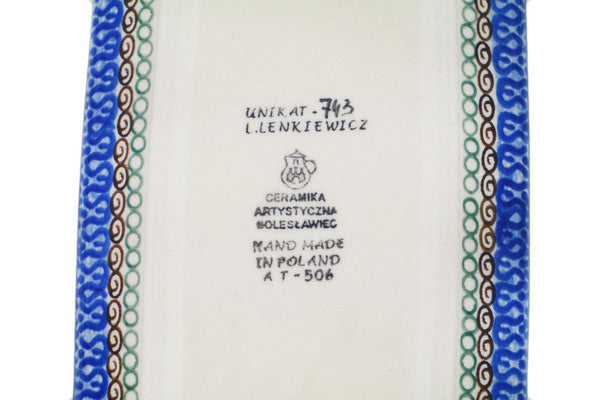 UNIKAT - 743
L.LENKIEWICZ
CERAMIKA
ARTYSTYCZNA
BOLESŁAWIEC
HAND MADE
IN POLAND
A T - 506